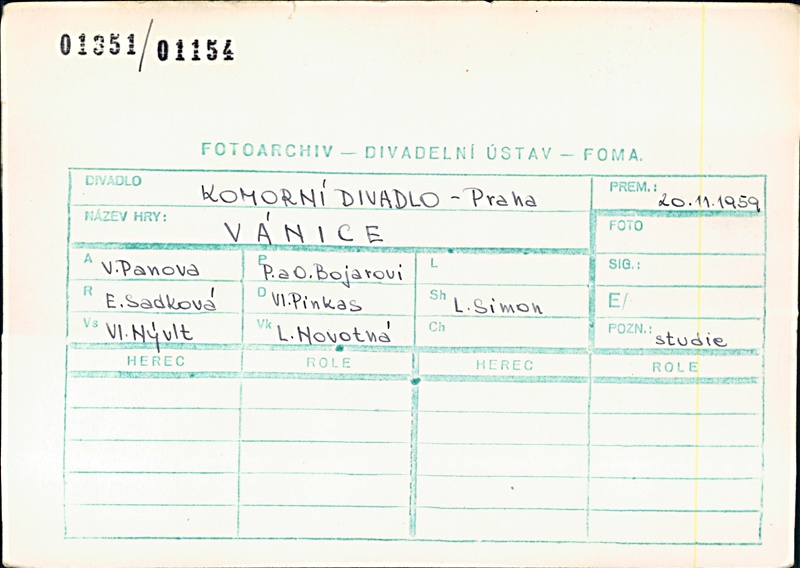 01351/01154
FOTOARCHIV — DIVADELNÍ ÚSTAV — FOMA.
DIVADLO KOMORNÍ DIVADLO - Praha PREM.: 20.11.1959
NÁZEV HRY: VÁNICE FOTO
A V. Panova P P. a O. Bojarovi L SIG.:
R E. Sadková D Vl. Pinkas Sh L. Simon E/
Vs Vl. Nývlt Vk L. Novotná Ch POZN.: studie
HEREC ROLE HEREC ROLE